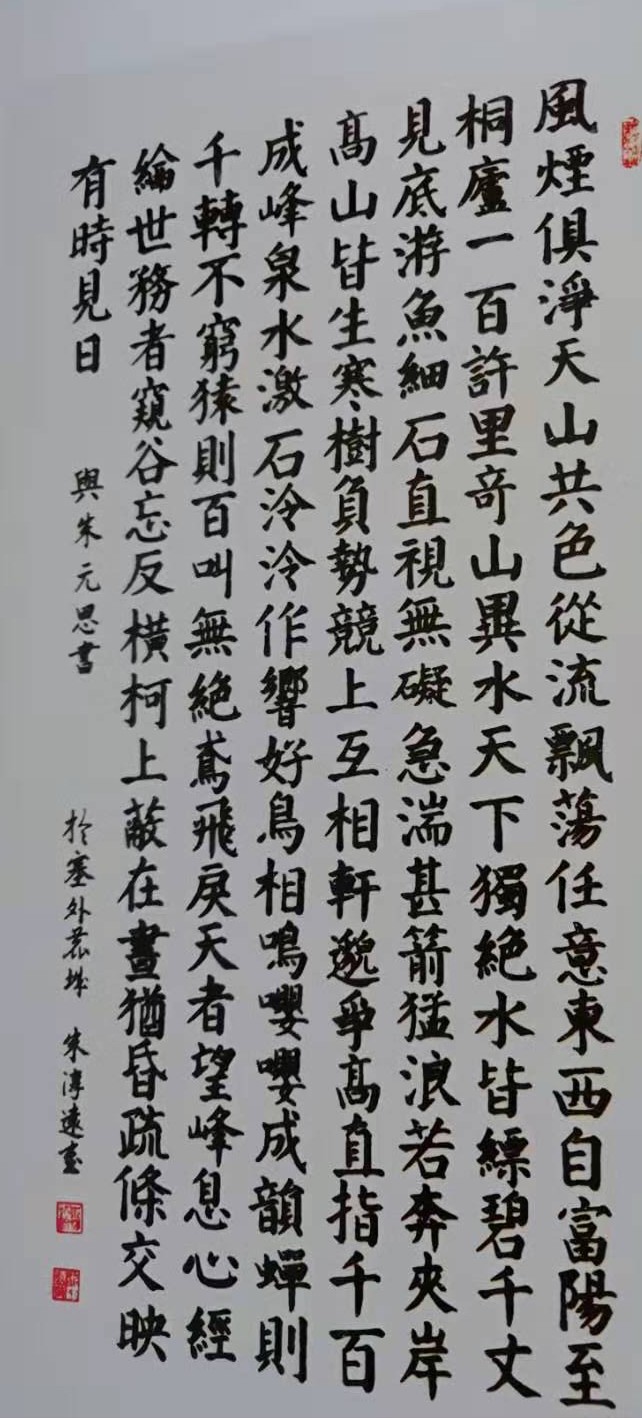 風煙俱淨天山共色從流飄蕩任意東西自富陽至
桐廬一百許里奇山異水天下獨絕水皆縹碧千丈
見底游魚細石直視無礙急湍甚箭猛浪若奔夾岸
高山皆生寒樹負勢競上互相軒邈爭高直指千百
成峰泉水激石泠泠作響好鳥相鳴嚶嚶成韻蟬則
千轉不窮猿則百叫無絕鳶飛戾天者望峰息心經
綸世務者窺谷忘反橫柯上蔽在晝猶昏疏條交映
有時見日
與朱元思書
於塞外 城 朱 遠書